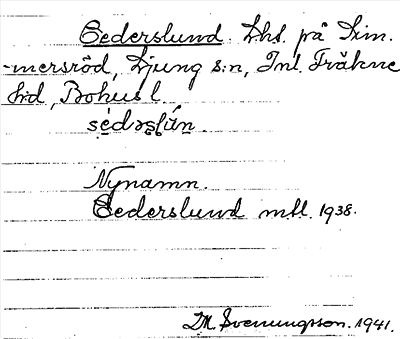 Cederslund. Lhs. på Sim-
mersröd, Ljung s:n, Inl. Fräkne
hd, Bohusl.
sèdəșlún.
Nynamn.
Cederslund mtl. 1938.
D.M. Svenungsson. 1941.